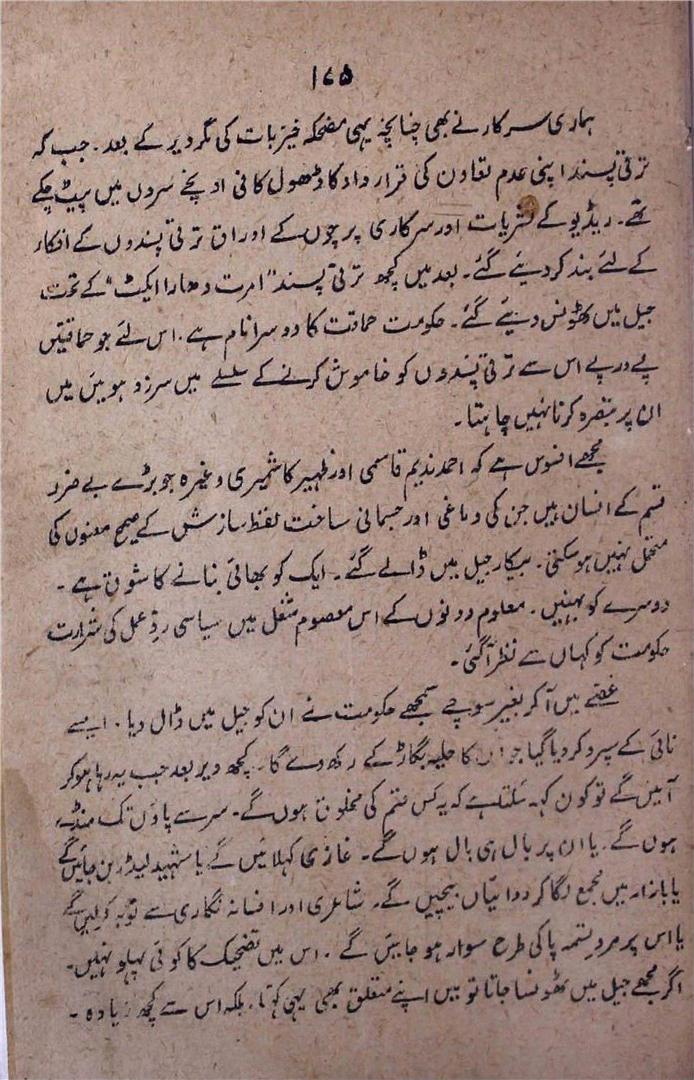 ۱۷۵
ہماری سرکار نے بھی چنانچہ یہی مضحکہ خیز بات کی مگر دیر کے بعد۔ جب کہ
ترقی پسند اپنی عدم تعاون کی قرار داد کا ڈھول کافی اونچے سروں میں پیٹ چکے
تھے۔ ریڈیو کے نشریات اور سرکاری پرچوں کے اوراق ترقی پسندوں کے افکار
کے لئے بند کر دیئے گئے۔ بعد میں کچھ ترقی پسند "امرت دھارا ایکٹ" کے تحت
جیل میں ٹھونس دیئے گئے۔ حکومت حماقت کا دوسرا نام ہے۔ اس لئے جو حماقتیں
پے درپے اس سے ترقی پسندوں کو خاموش کرنے کے سلسلے میں سرزد ہوئیں میں
ان پر تبصرہ کرنا نہیں چاہتا۔
مجھے افسوس ہے کہ احمد ندیم قاسمی اور ظہیر کاشمیری وغیرہ جو بڑے بے ضرر
قسم کے انسان ہیں جن کی دماغی اور جسمانی ساخت لفظ سازش کے صحیح معنوں کی
متحمل نہیں ہو سکتی۔ بیکار جیل میں ڈالے گئے۔ ایک کو بھائی بنانے کا شوق ہے۔
دوسرے کو بہنیں۔ معلوم دونوں کے اس معصوم شغل میں سیاسی ردِ عمل کی شرارت
حکومت کو کہاں سے نظر آگئی۔
غصے میں آکر بغیر سوچے سمجھے حکومت نے ان کو جیل میں ڈال دیا۔ ایسے
نائی کے سپرد کر دیا گیا جو ان کا حلیہ بگاڑ کے رکھ دے گا۔ کچھ دیر بعد جب یہ رہا ہو کر
آئیں گے تو کون کہہ سکتا ہے کہ یہ کس قسم کی مخلوق ہوں گے۔ سر سے پاؤں تک منڈے
ہوں گے۔ یا ان پر بال ہی بال ہوں گے۔ غازی کہلائیں گے یا شہید لیڈر بن جائیں گے
یا بازار میں مجمع لگا کر دوائیاں بیچیں گے۔ شاعری اور افسانہ نگاری سے توبہ کرلیں گے
یا اس پر مرد تسمہ پا کی طرح سوار ہو جائیں گے۔ اس میں تضحیک کا کوئی پہلو نہیں۔
اگر مجھے جیل میں ٹھونسا جاتا تو میں اپنے متعلق بھی یہی کہتا۔ بلکہ اس سے کچھ زیادہ۔